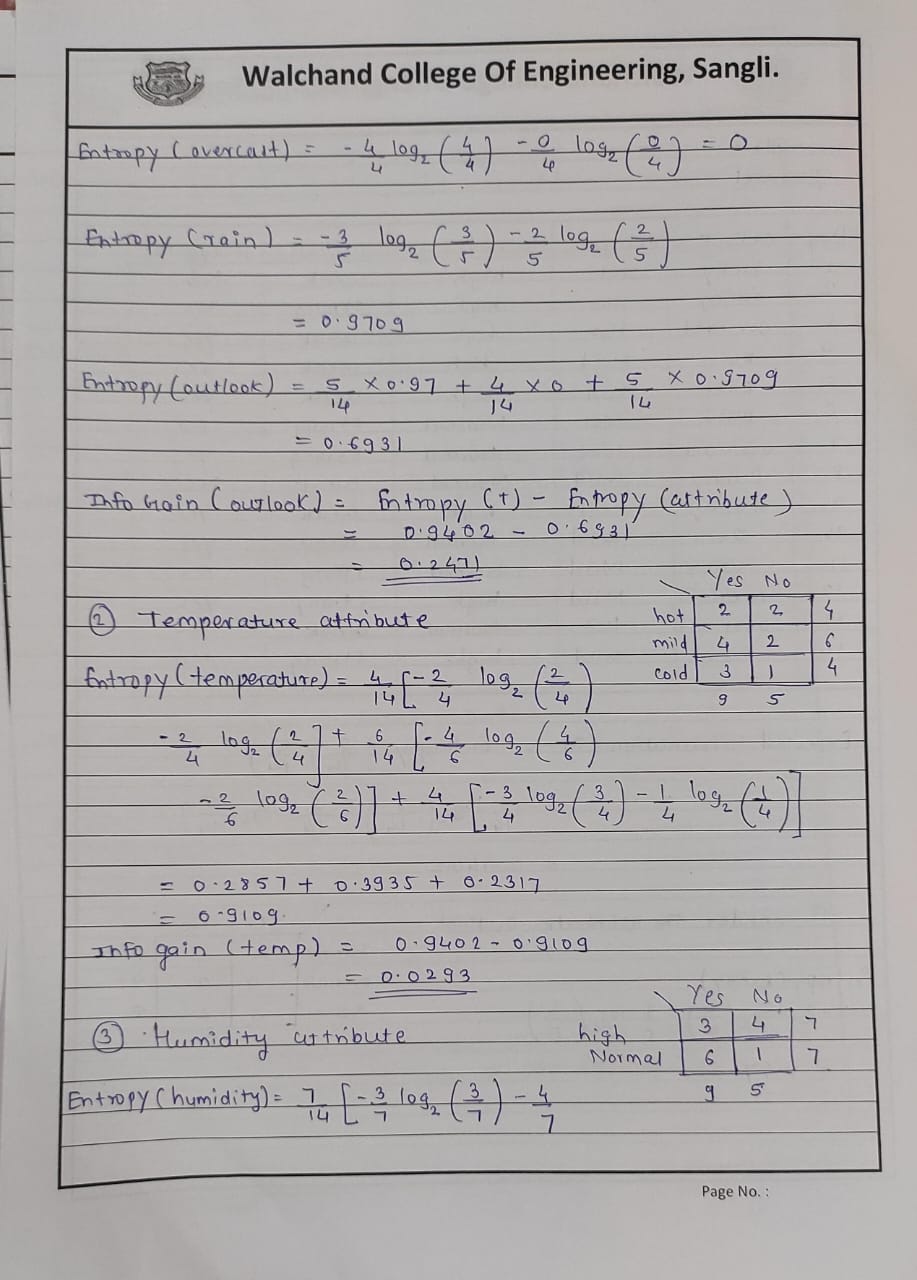 Walchand College Of Engineering, Sangli.
Entropy (overcast) = -4/4 log₂ (4/4) - 0/4 log₂ (0/4) = 0
Entropy (rain) = -3/5 log₂ (3/5) - 2/5 log₂ (2/5)
= 0.9709
Entropy (outlook) = 5/14 x 0.97 + 4/14 x 0 + 5/14 x 0.9709
= 0.6931
Info Gain (outlook) = Entropy (t) - Entropy (attribute)
= 0.9402 - 0.6931
= 0.2471
Yes No
② Temperature attribute
hot 2 2 4
mild 4 2 6
cold 3 1 4
9 5
Entropy (temperature) = 4/14 [-2/4 log₂ (2/4)
-2/4 log₂ (2/4)] + 6/14 [-4/6 log₂ (4/6)
-2/6 log₂ (2/6)] + 4/14 [-3/4 log₂ (3/4) - 1/4 log₂ (1/4)]
= 0.2857 + 0.3935 + 0.2317
= 0.9109.
Info gain (temp) = 0.9402 - 0.9109
= 0.0293
Yes No
③ Humidity attribute
high 3 4 7
Normal 6 1 7
9 5
Entropy (humidity) = 7/14 [-3/7 log₂ (3/7) - 4/7
Page No. :